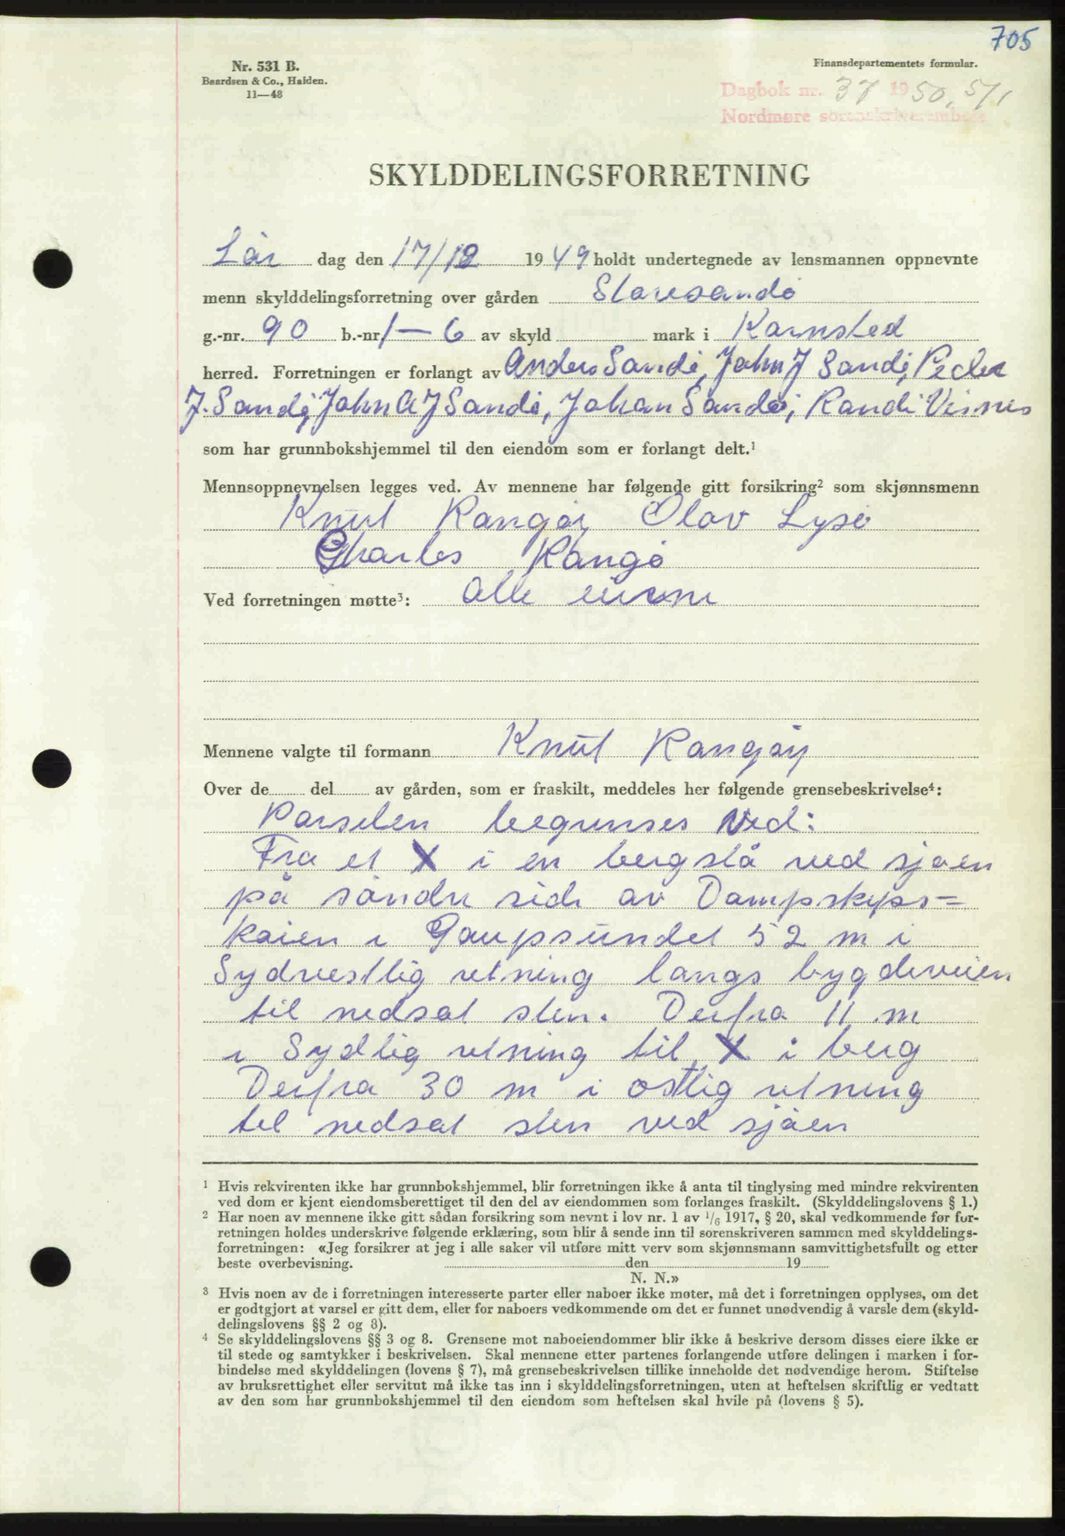 705
Nr. 531 B.
Baardsen & Co., Halden.
11—48
Finansdepartementets formular.
Dagbok nr. 37 1950, 5/1
Nordmøre sorenskriverembete
SKYLDDELINGSFORRETNING
Lør dag den 17/12 1949 holdt undertegnede av lensmannen oppnevnte
menn skylddelingsforretning over gården Storesandø
g.-nr. 90 b.-nr. 1—6 av skyld mark i Kornsted
herred. Forretningen er forlangt av Anders Sandø, John J Sandø, Peder
J. Sandø, John A J Sandø, Johan Sandø, Randi Visnes
som har grunnbokshjemmel til den eiendom som er forlangt delt.¹
Mennsoppnevnelsen legges ved. Av mennene har følgende gitt forsikring² som skjønnsmenn
Knut Rangøy Olav Lysø
Charles Rangø
Ved forretningen møtte³: alle eierne
Mennene valgte til formann Knut Rangøy
Over de del av gården, som er fraskilt, meddeles her følgende grensebeskrivelse⁴:
Parselen begrenses ved:
Fra et X i en bergslå ved sjøen
på søndre side av Dampskips=
kaien i Gaupsundet 52 m i
Sydvestlig retning langs bygdeveien
til nedsat sten. Derfra 11 m
i Sydlig retning til X i berg
Derfra 30 m i østlig retning
til nedsat sten ved sjøen
¹ Hvis rekvirenten ikke har grunnbokshjemmel, blir forretningen ikke å anta til tinglysing med mindre rekvirenten
ved dom er kjent eiendomsberettiget til den del av eiendommen som forlanges fraskilt. (Skylddelingslovens § 1.)
² Har noen av mennene ikke gitt sådan forsikring som nevnt i lov nr. 1 av 1/6 1917, § 20, skal vedkommende før for-
retningen holdes underskrive følgende erklæring, som blir å sende inn til sorenskriveren sammen med skylddelings-
forretningen: «Jeg forsikrer at jeg i alle saker vil utføre mitt verv som skjønnsmann samvittighetsfullt og etter
beste overbevisning. den 19
N. N.»
³ Hvis noen av de i forretningen interesserte parter eller naboer ikke møter, må det i forretningen opplyses, om det
er godtgjort at varsel er gitt dem, eller for naboers vedkommende om det er funnet unødvendig å varsle dem (skyld-
delingslovens §§ 2 og 8).
⁴ Se skylddelingslovens §§ 3 og 8. Grensene mot naboeiendommer blir ikke å beskrive dersom disses eiere ikke er
til stede og samtykker i beskrivelsen. Skal mennene etter partenes forlangende utføre delingen i marken i for-
bindelse med skylddelingen (lovens § 7), må grensebeskrivelsen tillike inneholde det nødvendige herom. Stiftelse
av bruksrettighet eller servitut må ikke tas inn i skylddelingsforretningen, uten at heftelsen skriftlig er vedtatt
av den som har grunnbokshjemmel til den eiendom som heftelsen skal hvile på (lovens § 5).